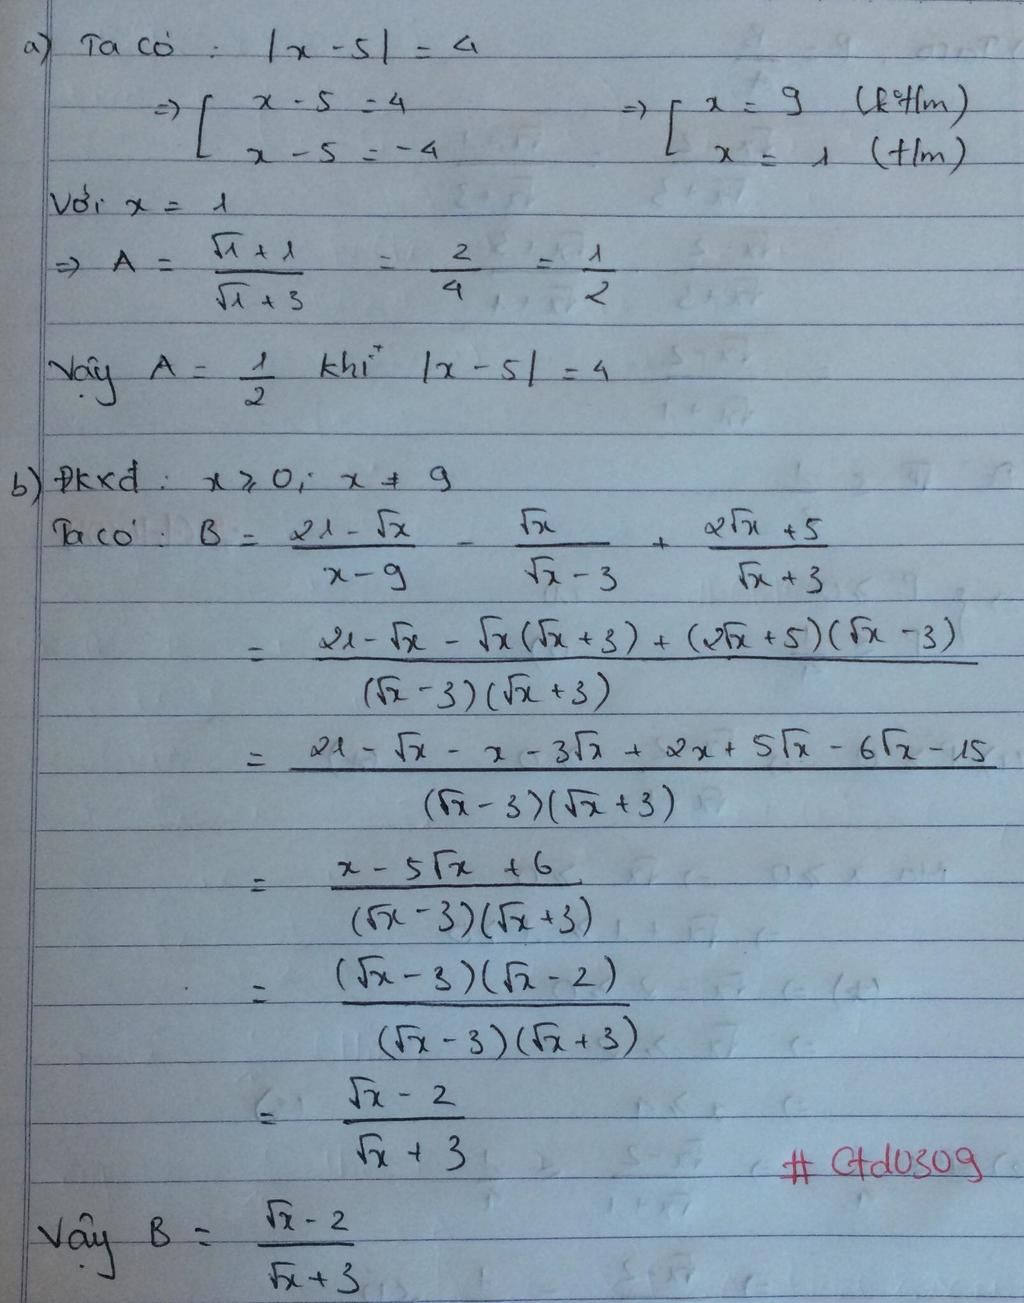 a) Ta có : |x - 5| = 4
=> [ x - 5 = 4 => [ x = 9 (k°t/m)
x - 5 = -4 x = 1 (t/m)
Với x = 1
=> A = (√1 + 1)/(√1 + 3) = 2/4 = 1/2
Vậy A = 1/2 khi |x - 5| = 4
b) Đkxđ : x ⩾ 0; x ≠ 9
Ta có : B = (21 - √x)/(x - 9) - √x/(√x - 3) + (2√x + 5)/(√x + 3)
= (21 - √x - √x(√x + 3) + (2√x + 5)(√x - 3))/((√x - 3)(√x + 3))
= (21 - √x - x - 3√x + 2x + 5√x - 6√x - 15)/((√x - 3)(√x + 3))
= (x - 5√x + 6)/((√x - 3)(√x + 3))
= ((√x - 3)(√x - 2))/((√x - 3)(√x + 3))
= (√x - 2)/(√x + 3)
# Ctd0309
Vậy B = (√x - 2)/(√x + 3)